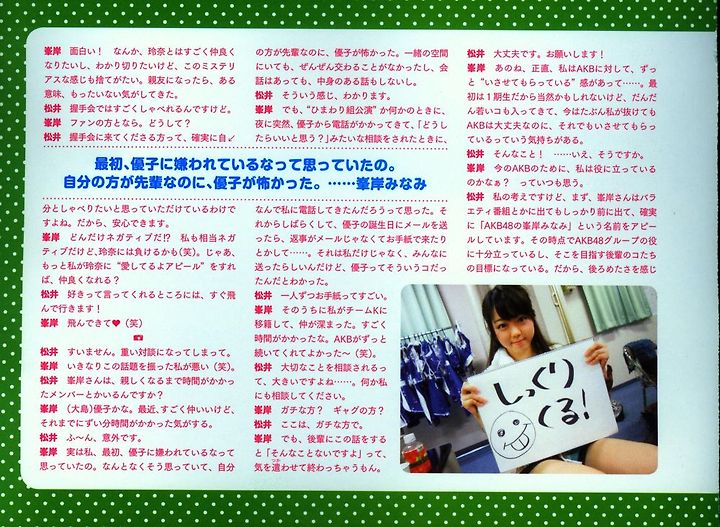 峯岸 面白い! なんか、玲奈とはすごく仲良く
なりたいし、わかり切りたいけど、このミステリ
アスな感じも捨てがたい。親友になったら、ある
意味、もったいない気がしてきた。
松井 握手会ではすごくしゃべれるんですけど。
峯岸 ファンの方となら。どうして?
松井 握手会に来てくださる方って、確実に自↙
の方が先輩なのに、優子が怖かった。一緒の空間
にいても、ぜんぜん交わることがなかったし、会
話はあっても、中身のある話もしないし。
松井 そういう感じ、わかります。
峯岸 でも、“ひまわり組公演”か何かのときに、
夜に突然、優子から電話がかかってきて、「どうし
たらいいと思う?」みたいな相談をされたときに、
最初、優子に嫌われているなって思っていたの。
自分の方が先輩なのに、優子が怖かった。……峯岸みなみ
分としゃべりたいと思っていただけているわけで
すよね。だから、安心できます。
峯岸 どんだけネガティブだ!? 私も相当ネガ
ティブだけど、玲奈には負けるかも(笑)。じゃあ、
もっと私が玲奈に“愛してるよアピール”をすれ
ば、仲良くなれる?
松井 好きって言ってくれるところには、すぐ飛
んで行きます!
峯岸 飛んできて♥(笑)
松井 すいません。重い対談になってしまって。
峯岸 いきなりこの話題を振った私が悪い(笑)。
松井 峯岸さんは、親しくなるまで時間がかかっ
たメンバーとかいるんですか?
峯岸 (大島)優子かな。最近、すごく仲いいけど、
それまでにずい分時間がかかった気がする。
松井 ふ〜ん、意外です。
峯岸 実は私、最初、優子に嫌われているなって
思っていたの。なんとなくそう思っていて、自分
なんで私に電話してきたんだろうって思った。そ
れからしばらくして、優子の誕生日にメールを送
ったら、返事がメールじゃなくてお手紙で来たり
とかして……。それは私だけじゃなく、みんなに
送ったらしいんだけど、優子ってそういうコだっ
たんだとわかった。
松井 一人ずつお手紙ってすごい。
峯岸 そのうちに私がチームKに
移籍して、仲が深まった。すごく
時間がかかったな。AKBがずっと
続いてくれてよかった〜(笑)。
松井 大切なことを相談されるっ
て、大きいですよね……。何か私
にも相談してください。
峯岸 ガチな方? ギャグの方?
松井 ここは、ガチな方で。
峯岸 でも、後輩にこの話をする
と「そんなことないですよ」って、
気を遣わせて終わっちゃうもん。
松井 大丈夫です。お願いします!
峯岸 あのね、正直、私はAKBに対して、ずっ
と“いさせてもらっている”感があって……。最
初は1期生だから当然かもしれないけど、だんだ
ん若いコも入ってきて、今はたぶん私が抜けても
AKBは大丈夫なのに、それでもいさせてもらっ
ているっていう気持ちがある。
松井 そんなこと! ……いえ、そうですか。
峯岸 今のAKBのために、私は役に立っている
のかなぁ? っていつも思う。
松井 私の考えですけど、まず、峯岸さんはバラ
エティ番組とかに出てもしっかり前に出て、確実
に「AKB48の峯岸みなみ」という名前をアピー
ルしています。その時点でAKB48グループの役
に十分立っているし、そこを目指す後輩のコたち
の目標になっている。だから、後ろめたさを感じ
しっくり
くる!